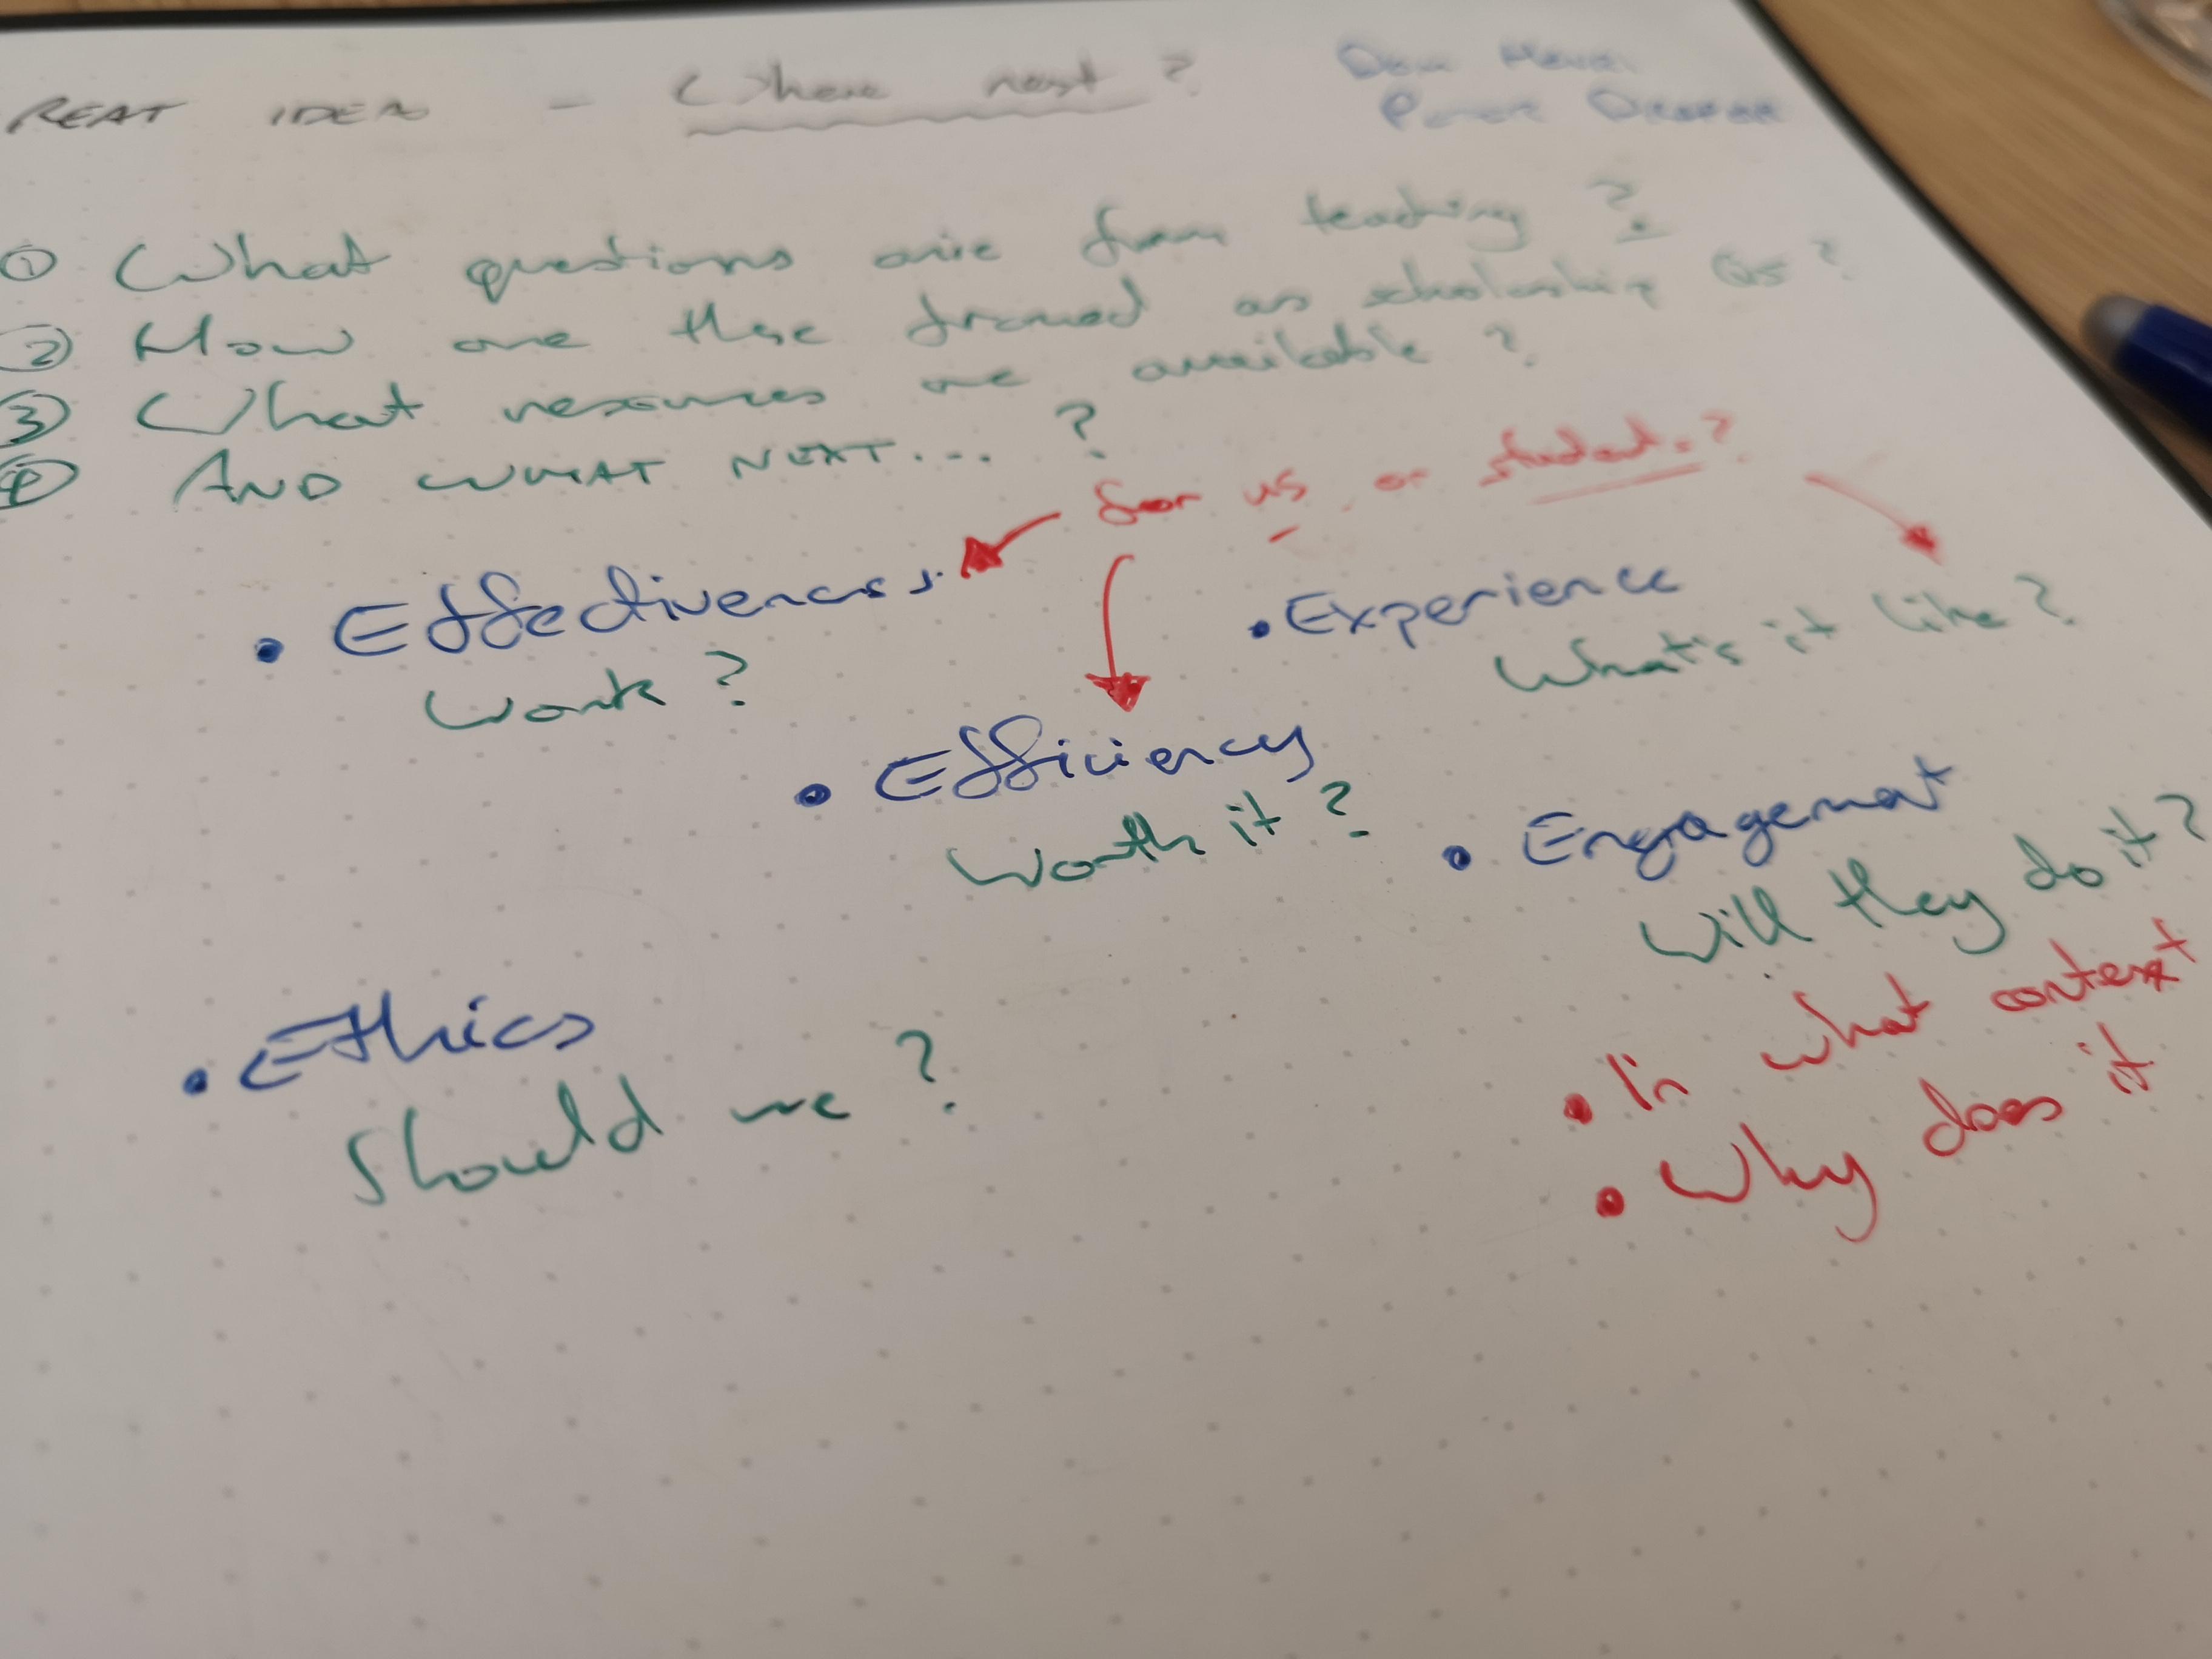 REAT IDEA - Where next ?
① What questions arise from teaching ?
② How are these framed as scholarship Qs ?
③ What resources are available ?
④ AND WHAT NEXT... ?
for us or students ?
• Effectiveness
Work ?
• Experience
What's it like ?
• Efficiency
Worth it ?
• Engagement
Will they do it ?
• Ethics
Should we ?
• In what context
• Why does it